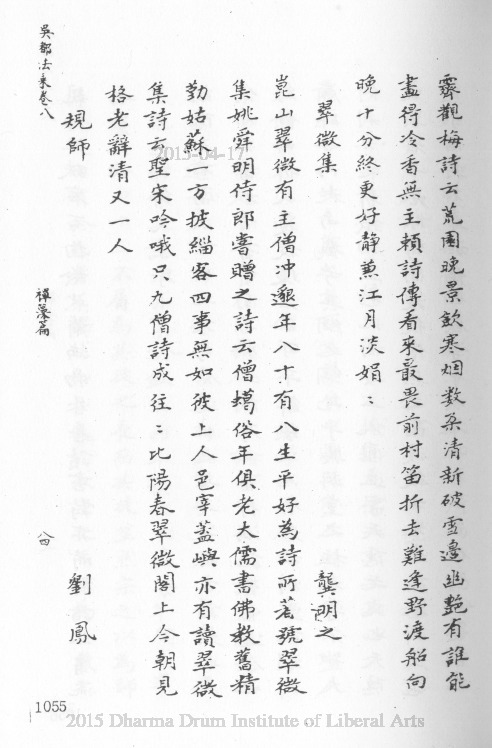 霽觀梅詩云荒園晚景歛寒烟数朶清新破雪邊幽艶有誰能
盡得冷香無主頼詩傳看來最畏前村笛折去難逢野渡船向
晚十分終更好静蒹江月淡娟〻
翠微集
龔明之
崑山翠微有主僧冲邈年八十有八生平好為詩所著號翠微
集姚舜明侍郎嘗贈之詩云僧蠟俗年俱老大儒書佛教舊精
勤姑蘇一方披緇客四事無如彼上人邑宰蓋嶼亦有讀翠微
集詩云聖宋吟哦只九僧詩成往〻比陽春翠微閣上今朝見
格老辭清又一人
規師
劉鳳
吳都法乘卷八
禪藻篇
八四
1055
2015-04-17
2015 Dharma Drum Institute of Liberal Arts